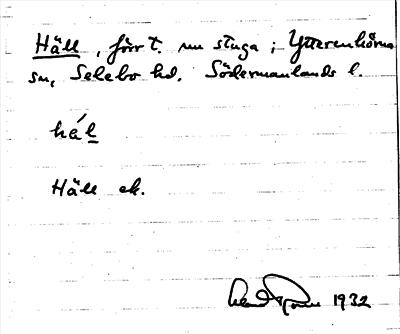 Häll, förr t. nu stuga i Ytterenhörna
sn, Selebo hd. Södermanlands l.
hál
Häll ek.
1932